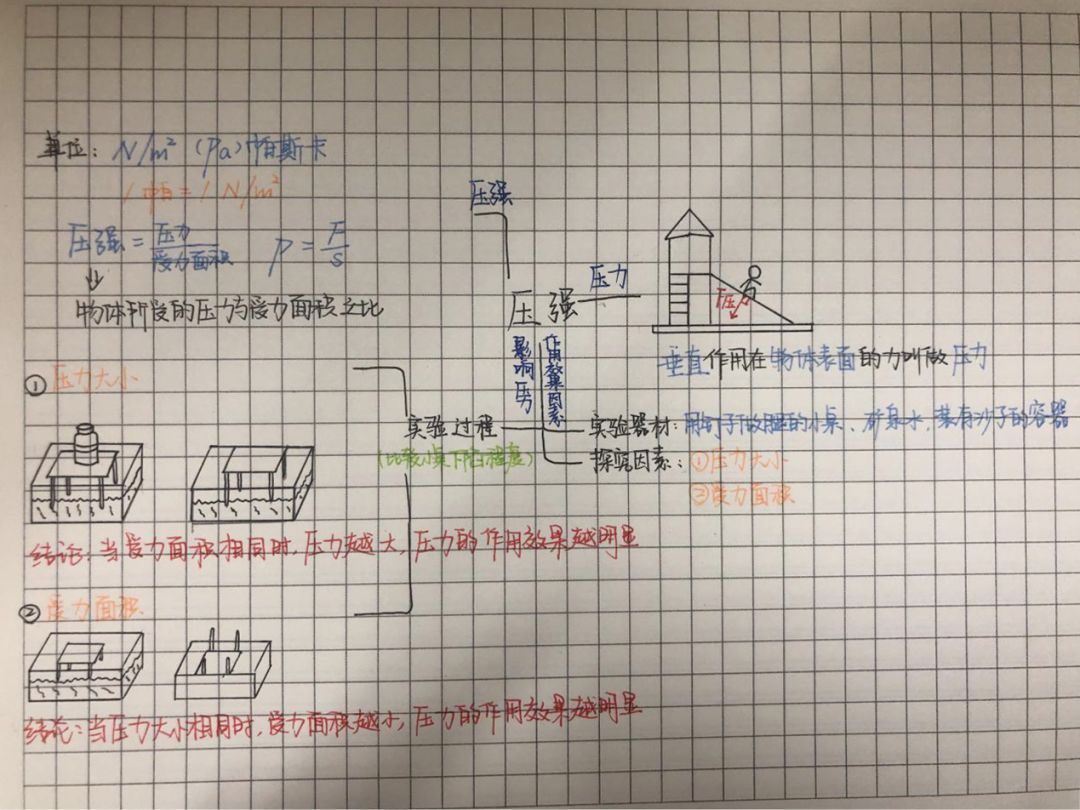 单位: N/m² (Pa) 帕斯卡
1帕=1 N/m²
压强=压力/受力面积 P=F/S
物体所受的压力与受力面积之比
压强
压强
压力
F压
垂直作用在物体表面的力叫做压力
影响压力
作用效果因素
实验过程
(比较小桌下陷程度)
实验器材:用钉子做腿的小桌、矿泉水、装有沙子的容器
探究因素:①压力大小
②受力面积
①压力大小
结论:当受力面积相同时,压力越大,压力的作用效果越明显
②受力面积
结论:当压力大小相同时,受力面积越小,压力的作用效果越明显